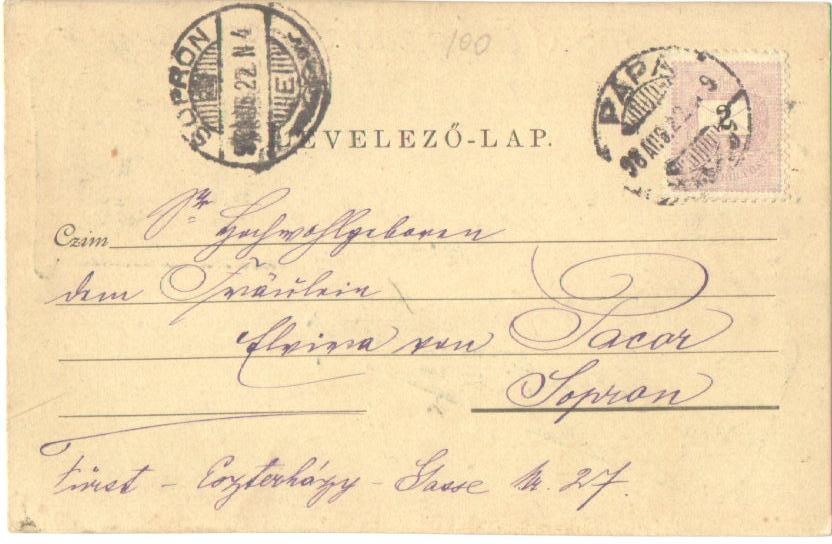 100
SOPRON
98 AUG. 22. N 4
E
PÁPA
98 AUG. 22.
2
LEVELEZŐ-LAP.
Czim Sr Hochwohlgeboren
dem Fräulein
Elvira von Pacor
Sopron
Fürst - Eszterházy - Gasse Nr. 27.